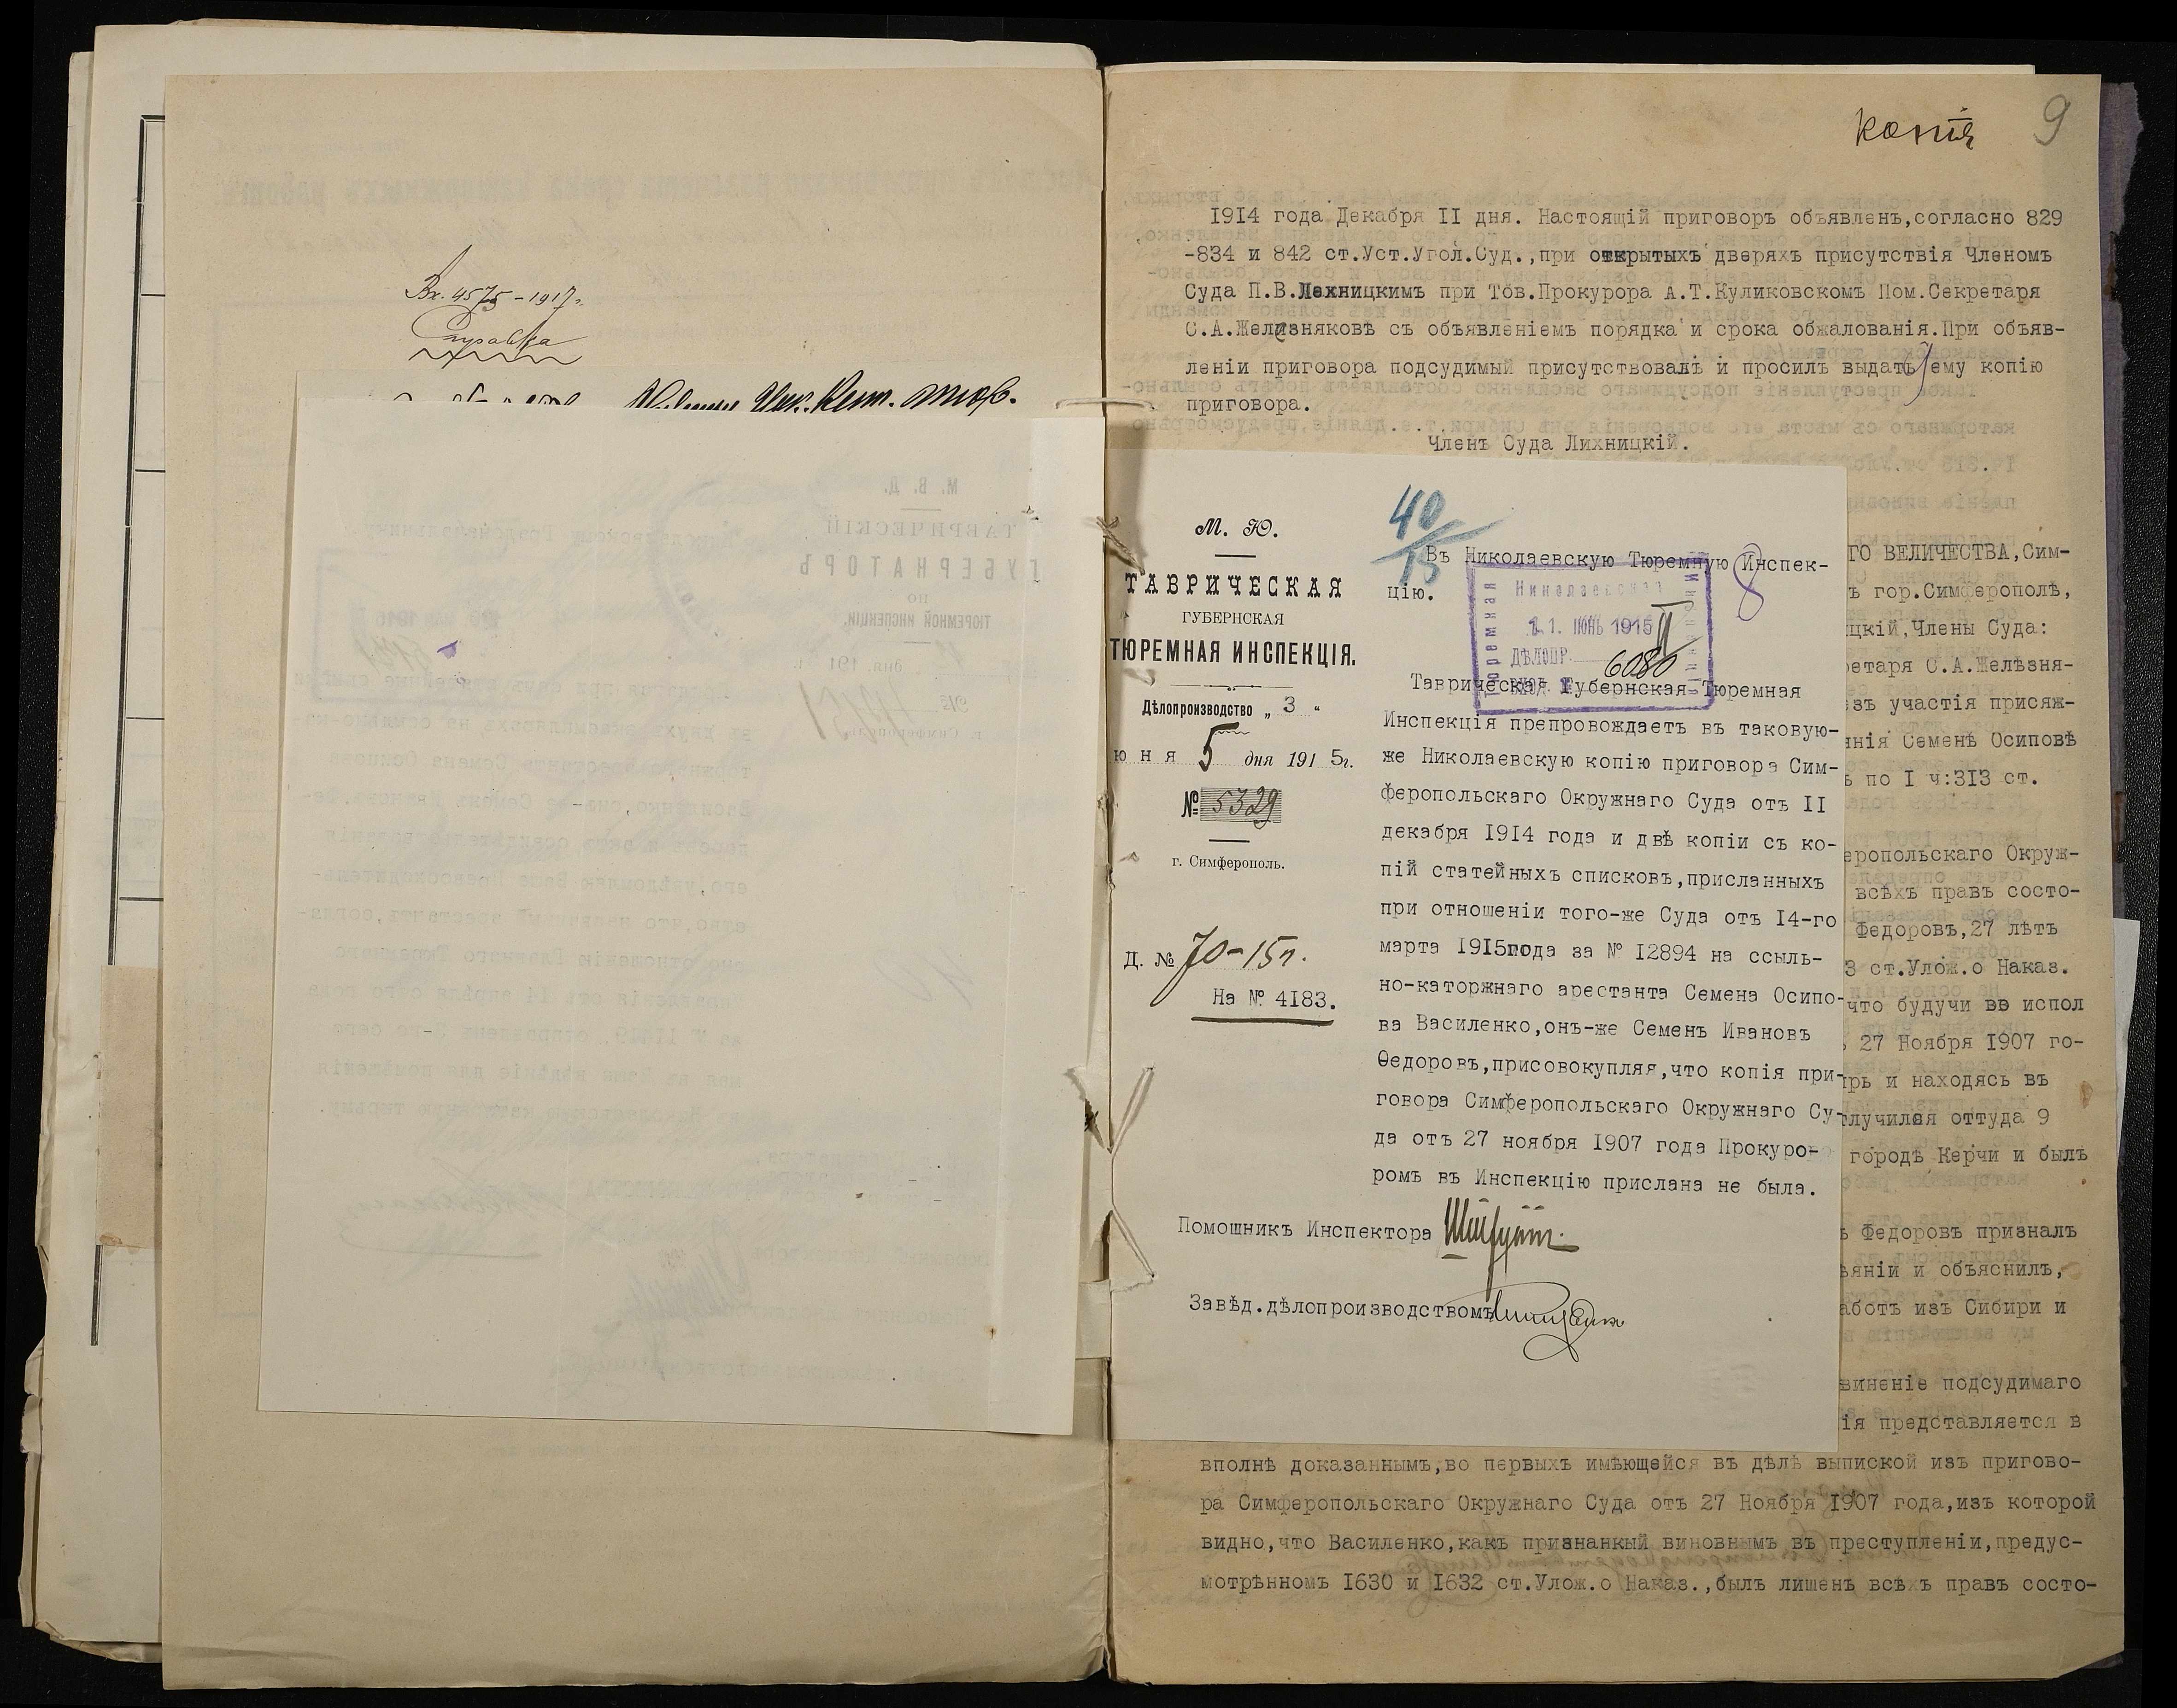 Вх. 4575-1917г.
Справка
копія
9
1914 года Декабря II дня. Настоящій приговоръ объявленъ,согласно 829
-834 и 842 ст.Уст.Угол.Суд.,при открытыхъ дверяхъ присутствія Членомъ
Суда П.В.Лехницкимъ при Тов.Прокурора А.Т.Куликовскомъ Пом.Секретаря
С.А.Желизняковѣ съ объявленіемъ порядка и срока обжалованія.При объяв-
леніи приговора подсудимый присутствовалъ и просилъ выдать ему копію
приговора.
Членъ Суда Лихницкій.
М. Ю.
ТАВРИЧЕСКАЯ
ГУБЕРНСКАЯ
ТЮРЕМНАЯ ИНСПЕКЦІЯ.
Дѣлопроизводство „ 3 “
юня 5 дня 1915г.
№ 5329
г. Симферополь.
Д. № 70-15г.
На № 4183.
40/15
Въ Николаевскую Тюремную Инспек-
цію.
8
Николаевская
Тюремная
Инспекція
11. ІЮНЬ 1915
ДѢЛОПР. II
ВХОД. № 6080
Таврическая Губернская Тюремная
Инспекція препровождаетъ въ таковую-
же Николаевскую копію приговора Сим-
феропольскаго Окружнаго Суда отъ II
декабря 1914 года и двѣ копіи съ ко-
пій статейныхъ списковъ,присланныхъ
при отношеніи того-же Суда отъ 14-го
марта 1915года за № 12894 на ссыль-
но-каторжнаго арестанта Семена Осипо-
ва Василенко,онъ-же Семенъ Ивановъ
Ѳедоровъ,присовокупляя,что копія при-
говора Симферопольскаго Окружнаго Су-
да отъ 27 ноября 1907 года Прокуро-
ромъ въ Инспекцію прислана не была.
Помошникъ Инспектора
Завѣд.дѣлопроизводствомъ
ГО ВЕЛИЧЕСТВА,Сим-
ъ гор.Симферополѣ,
ицкій,Члены Суда:
ретаря С.А.Желѣзня-
езъ участія присяж-
анія Семенѣ Осиповѣ
ъ по I ч:313 ст.
еропольскаго Окруж-
всѣхъ правъ состо-
Федоровъ,27 лѣтъ
3 ст.Улож.о Наказ.
что будучи во испол
27 Ноября 1907 го-
ирь и находясь въ
тлучился оттуда 9
городѣ Керчи и былъ
ъ Федоровъ призналъ
ѣяніи и объяснилъ,
аботъ изъ Сибири и
виненіе подсудимаго
ія представляется в
вполнѣ доказаннымъ,во первыхъ имѣющейся въ дѣлѣ выпиской изъ пригово-
ра Симферопольскаго Окружнаго Суда отъ 27 Ноября 1907 года,изъ которой
видно,что Василенко,какъ признанкый виновнымъ въ преступленіи,предус-
мотрѣнномъ 1630 и 1632 ст.Улож.о Наказ.,былъ лишенъ всѣхъ правъ состо-